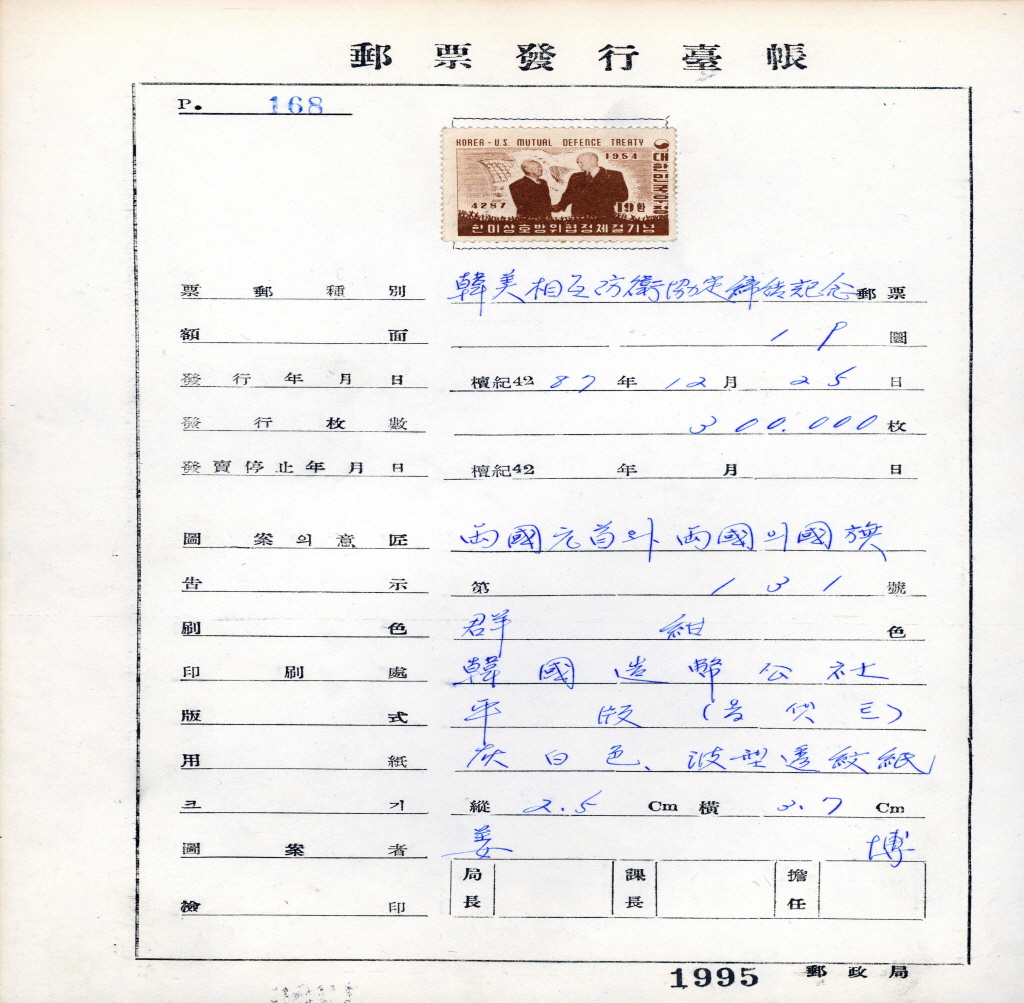 郵票發行臺帳
P. 168
KOREA - U.S. MUTUAL DEFENCE TREATY
1954
대한민국우표
4287
19환
한미상호방위협정체결기념
票郵種別 韓美相互防衛協定締結記念郵票
額面 19 圜
發行年月日 檀紀4287年12月25日
發行枚數 300.000枚
發賣停止年月日 檀紀42 年 月 日
圖案의意匠 両國元首와 両國의國旗
告示 第131號
刷色 群紺色
印刷處 韓國造幣公社
版式 平版(옵셋트)
用紙 灰白色、波型透紋紙
크기 縱2.5Cm橫3.7Cm
圖案者 姜博
檢印 局長 課長 擔任
1995 郵政局